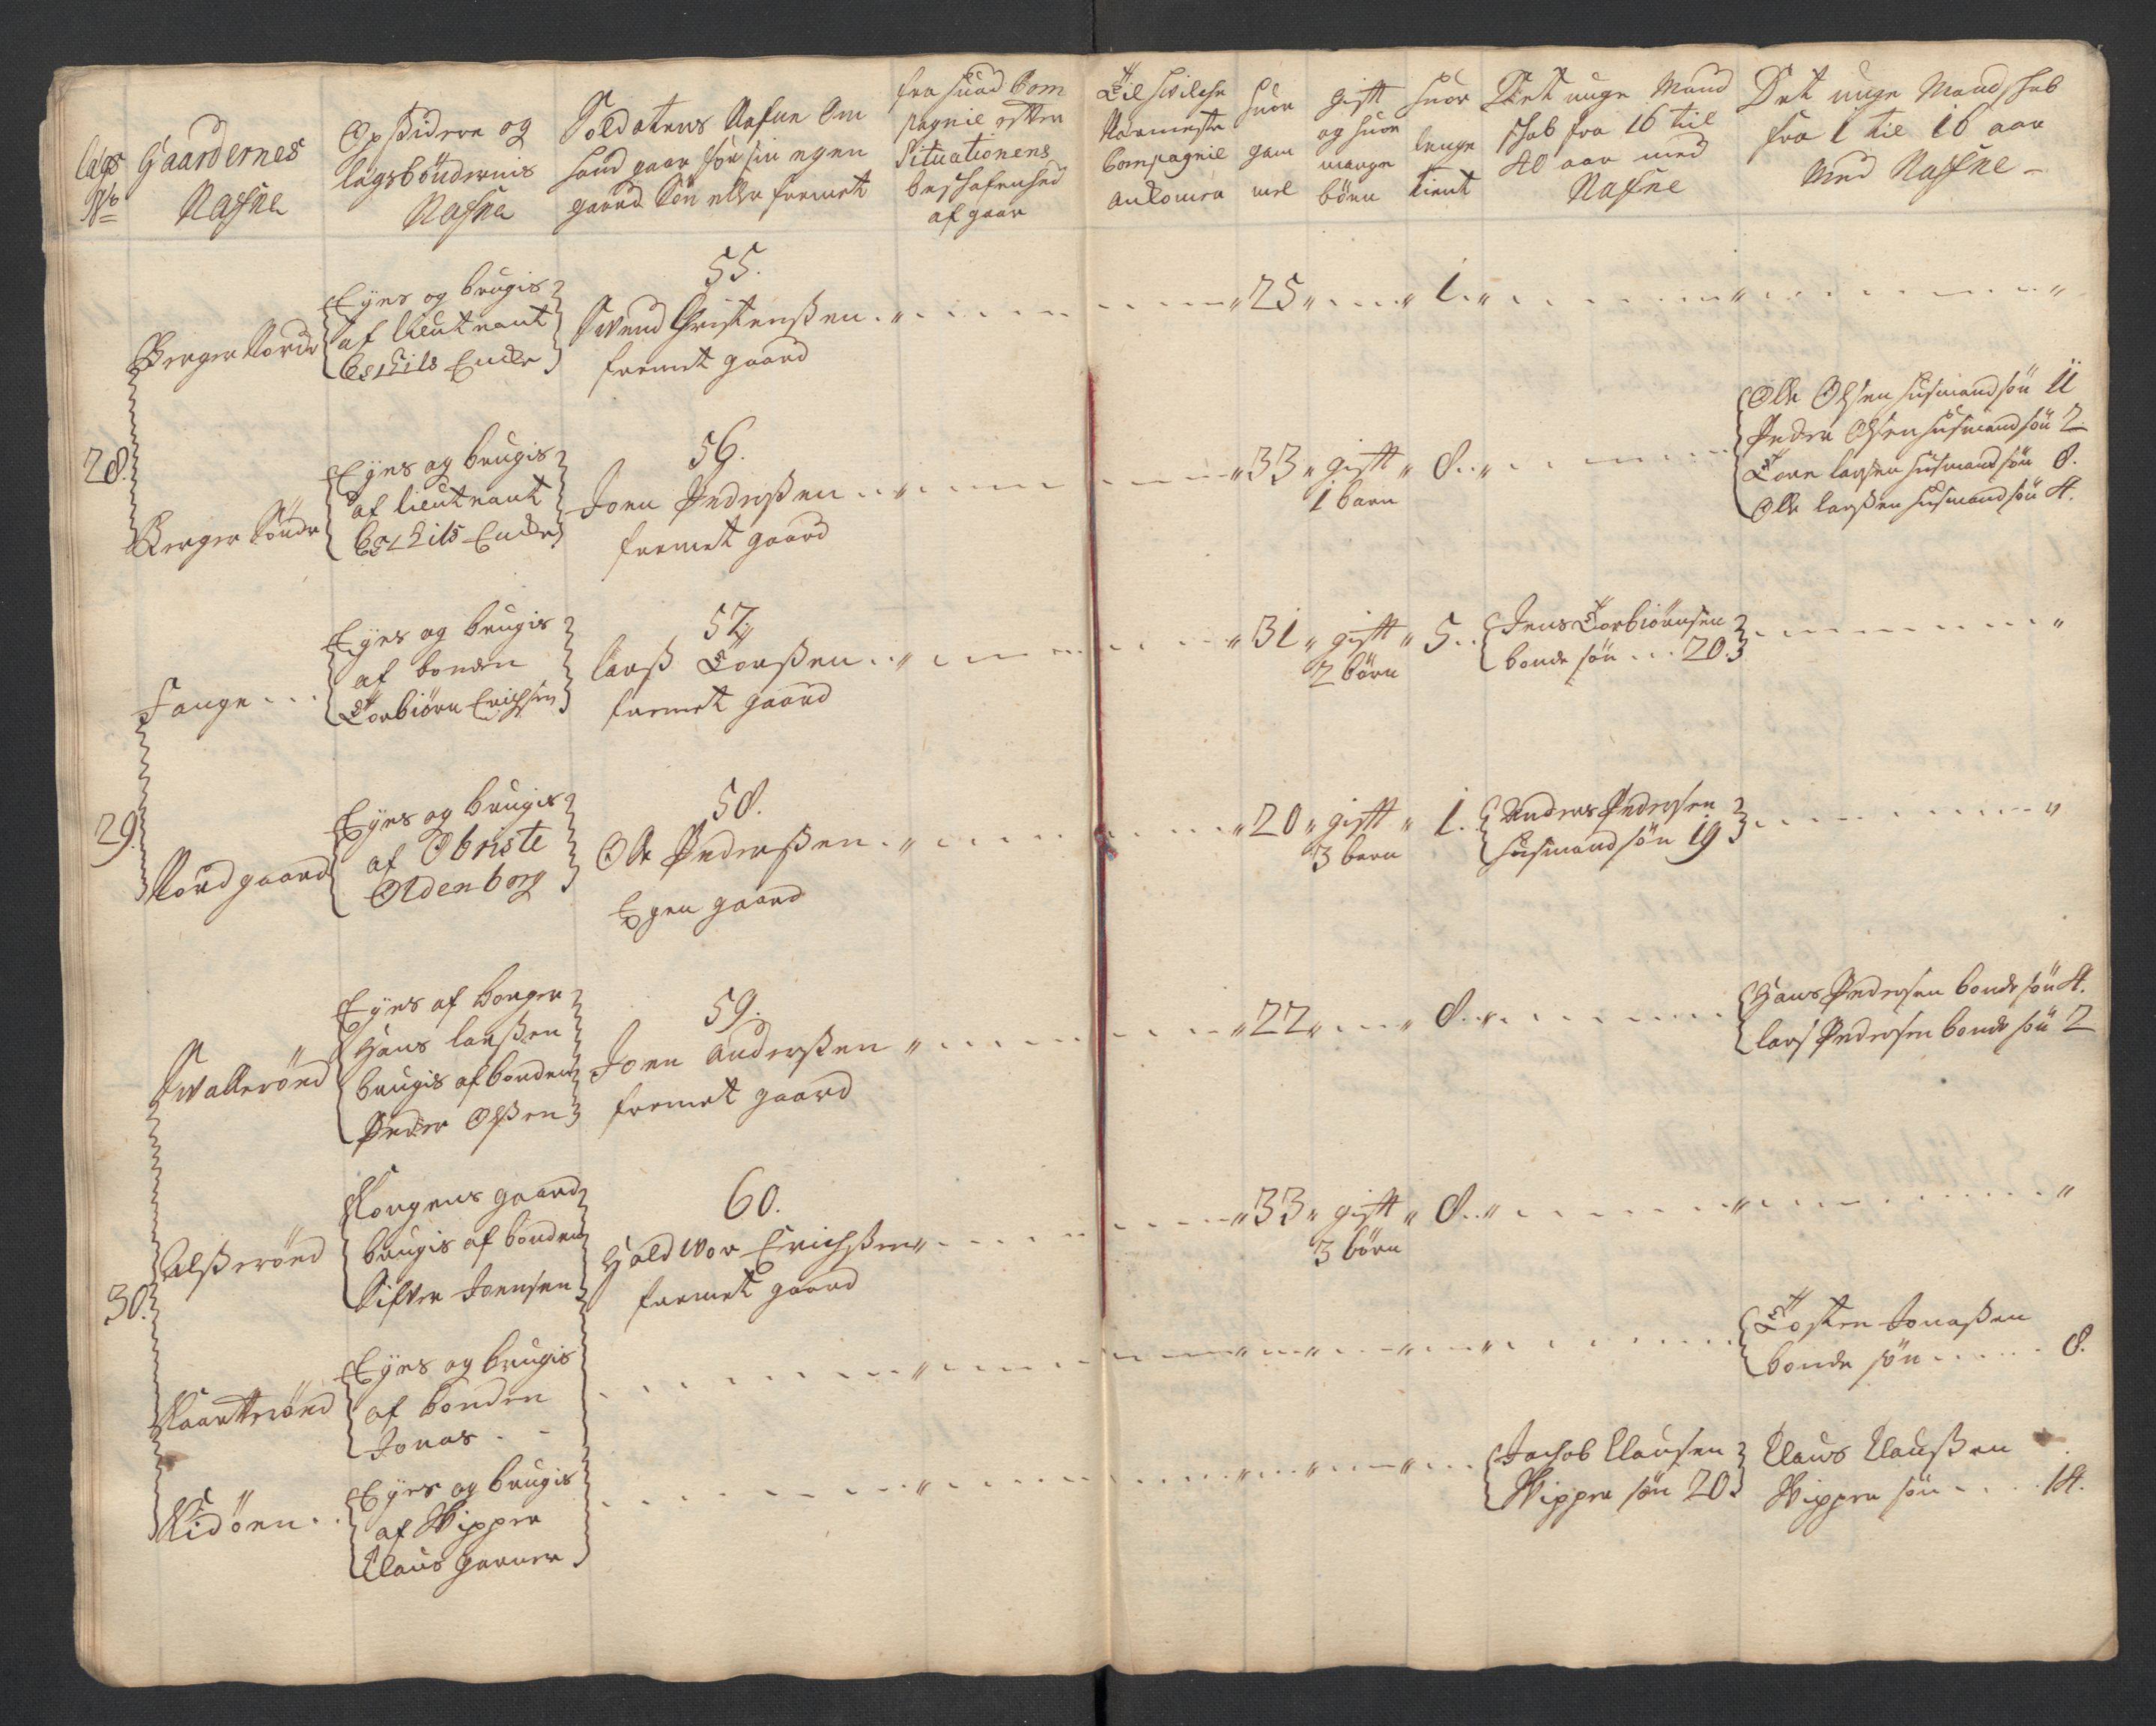 Lægs
No
Gaardernes
Nafne
Opsidere og
lægsbøndernis
Nafne
Soldatens Nafne Om
hand gaar for sin egen
gaard Søn eller fremet
fra huad Com
pagnie efter
Situationens
beschafenhed
af gaar
Til hvilche
Nærmeste
Compagnie
ankomen
huor
gam
mel
gifft
og huor
mange
børn
huor
lenge
tient
Det unge Mand
schab fra 16 til
40 aar med
Nafne
Det unge Mandschab
fra 1 til 16 aar
med Nafne -
28.
Berger Nordr
Eyes og brugis
af lieutnant
Eschils Encke
55.
Svend Christenßen
fremet gaard
25
1.
Berger Søndr
Eyes og brugis
af lieutnant
Eschils Encke
56.
Joen Pedersßen
fremet gaard
33 gifft 8.
1 barn
Olle Olsen husmand søn 11
Peder Olsen husmand søn 2
Tore larsen husmand søn 8.
Olle larßen husmand søn 4.
29.
Fange
Eyes og brugis
af bonden
Torbiørn Erichsen
57
larß Torßen
fremet gaard
31 gifft 5.
2 børn
Jens Torbiørnsen
bonde søn 20.
Nordgaard
Eyes og brugis
af Obriste
Oldenborg
58.
Ole Pederßen
Egen gaard
20 gifft 1.
3 barn
Anders Pedersen
husmand søn 19
30.
Svallerød
Eyes af borger
Hans larßen
brugis af bonden
Peder Olßen
59.
Joen anderßen
fremet gaard
22
8.
Hans Pedersen bonde søn 4.
lars Pedersen bonde søn 2
Alßerød
Kongens gaard
brugis af bonden
Sifver Joensen
60.
Haldvor Erichßen
fremet gaard
33 gifft 8.
3 børn
Kaartterød
Eyes og brugis
af bonden
Jonas
Tosten Jonaßen
bonde søn 8.
Kidøen
Eyes og brugis
af Skipper
Claus garner
Jachob Clausen
Skipper søn 20.
Claus Claußen
Skipper søn 14.